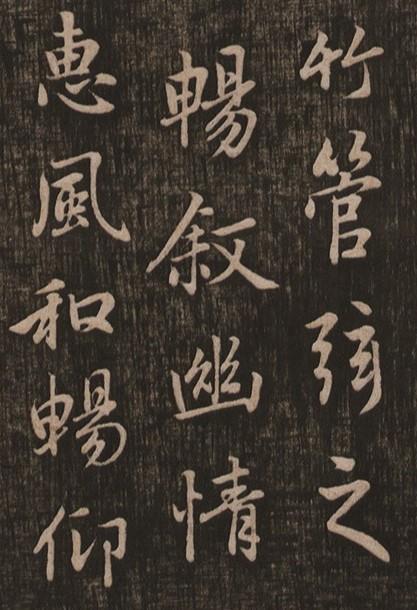 竹管弦之
暢叙幽情
惠風和暢仰